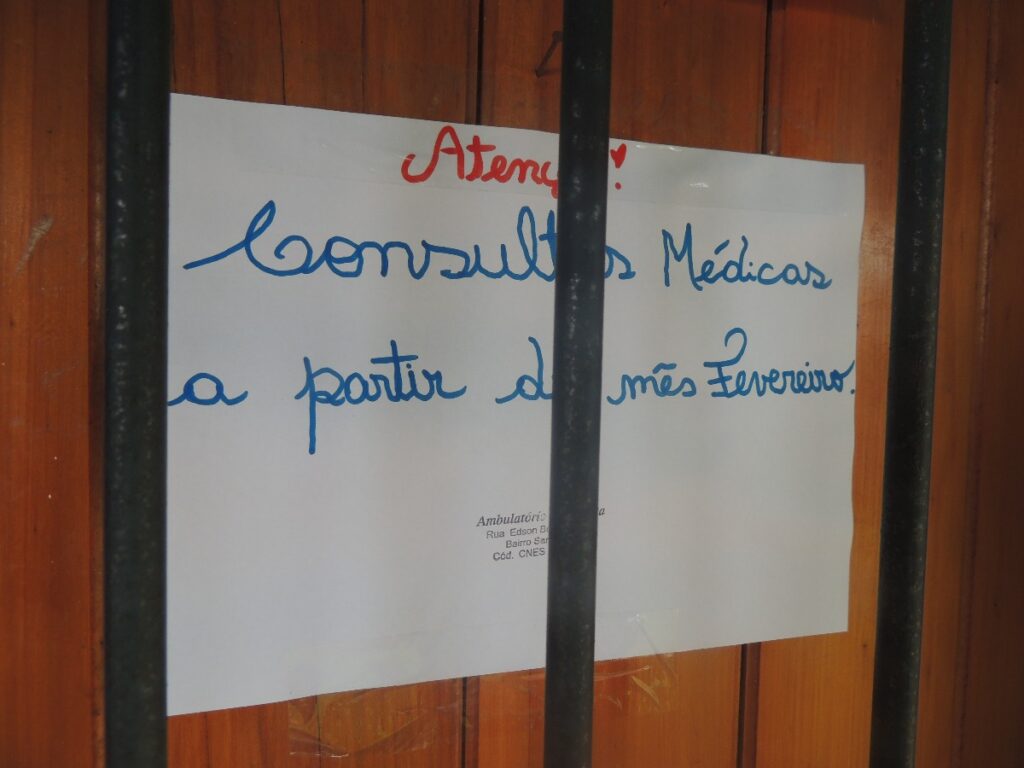 Atenç !
Consult s Médicas
a partir d mês Fevereiro.
Ambulatório
Rua Edson
Bairro
Cód. CNES